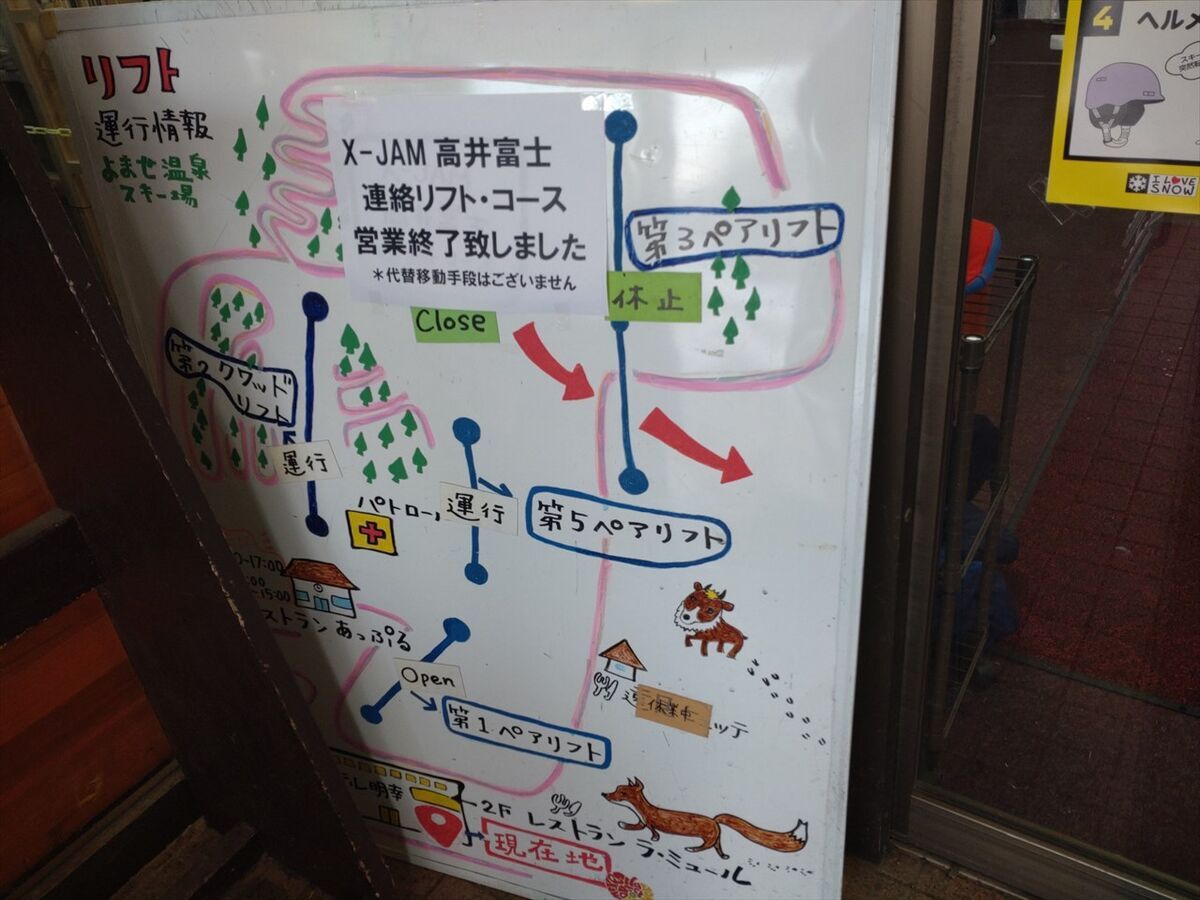 リフト
運行情報
よませ温泉
スキー場
X-JAM 高井富士
連絡リフト・コース
営業終了致しました
＊代替移動手段はございません
Close
第3ペアリフト
休止
第2クワッド
リフト
運行
パトロー
運行
第5ペアリフト
-17:00
:00
-15:00
ストラン あっぷる
Open
第1ペアリフト
休業中
ッテ
テル明幸
2F レストラン ラ・ミュール
現在地
4 ヘルメ
I LOVE
SNOW